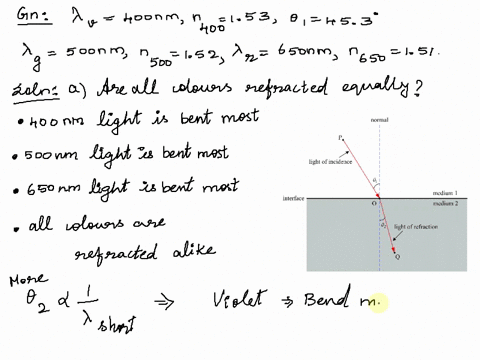 Gn: λv = 400nm, n400 = 1.53, θ1 = 45.3°
λg = 500nm, n500 = 1.52, λr = 650nm, n650 = 1.51.
Soln: a) Are all colours refracted equally?
• 400nm light is bent most
• 500nm light is bent most
• 650nm light is bent most
• all colours are
refracted alike
normal
P
light of incidence
θ1
interface
O
medium 1
medium 2
θ2
light of refraction
Q
More
θ2 ∝ 1/λ short ⇒ Violet ⇒ Bend m.